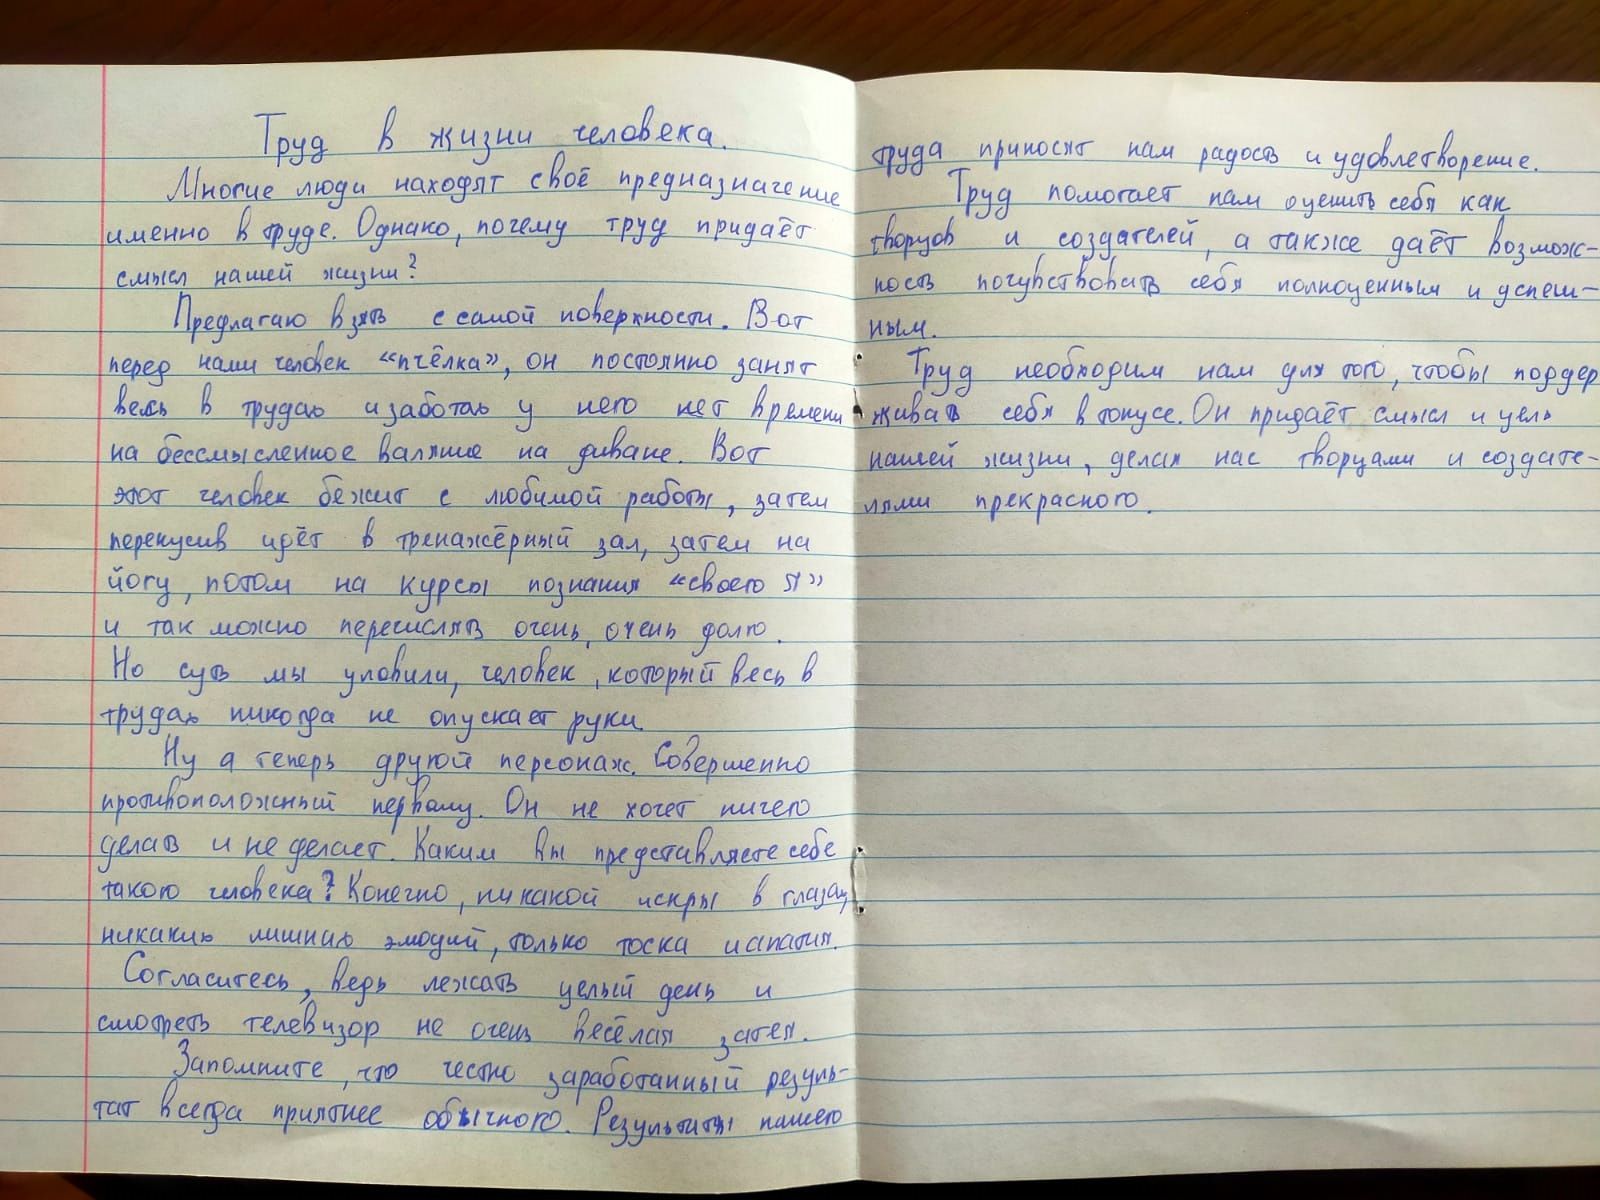 Труд в жизни человека.
Многие люди находят своё предназначение
именно в труде. Однако, почему труд придаёт
смысл нашей жизни?
Предлагаю взять с самой поверхности. Вот
перед нами человек «пчёлка», он постоянно занят
весь в трудах и заботах у него нет времени
на бессмысленное валяние на диване. Вот
этот человек бежит с любимой работы, затем
перекусив идёт в тренажёрный зал, затем на
йогу, потом на курсы познания «своего Я»
и так можно перечислять очень, очень долго.
Но суть мы уловили, человек, который весь в
трудах никогда не опускает руки.
Ну а теперь другой персонаж. Совершенно
противоположный первому. Он не хочет ничего
делать и не делает. Каким вы представляете себе
такого человека? Конечно, никакой искры в глазах,
никаких лишних эмоций, только тоска и апатия.
Согласитесь, ведь лежать целый день и
смотреть телевизор не очень весёлая затея.
Запомните, что честно заработанный резуль-
тат всегда приятнее обычного. Результаты нашего
труда приносят нам радость и удовлетворение.
Труд помогает нам оценить себя как
творцов и создателей, а также даёт возмож-
ность почувствовать себя полноценным и успеш-
ным.
Труд необходим нам для того, чтобы поддер
живать себя в тонусе. Он придаёт смысл и цель
нашей жизни, делая нас творцами и создате-
лями прекрасного.